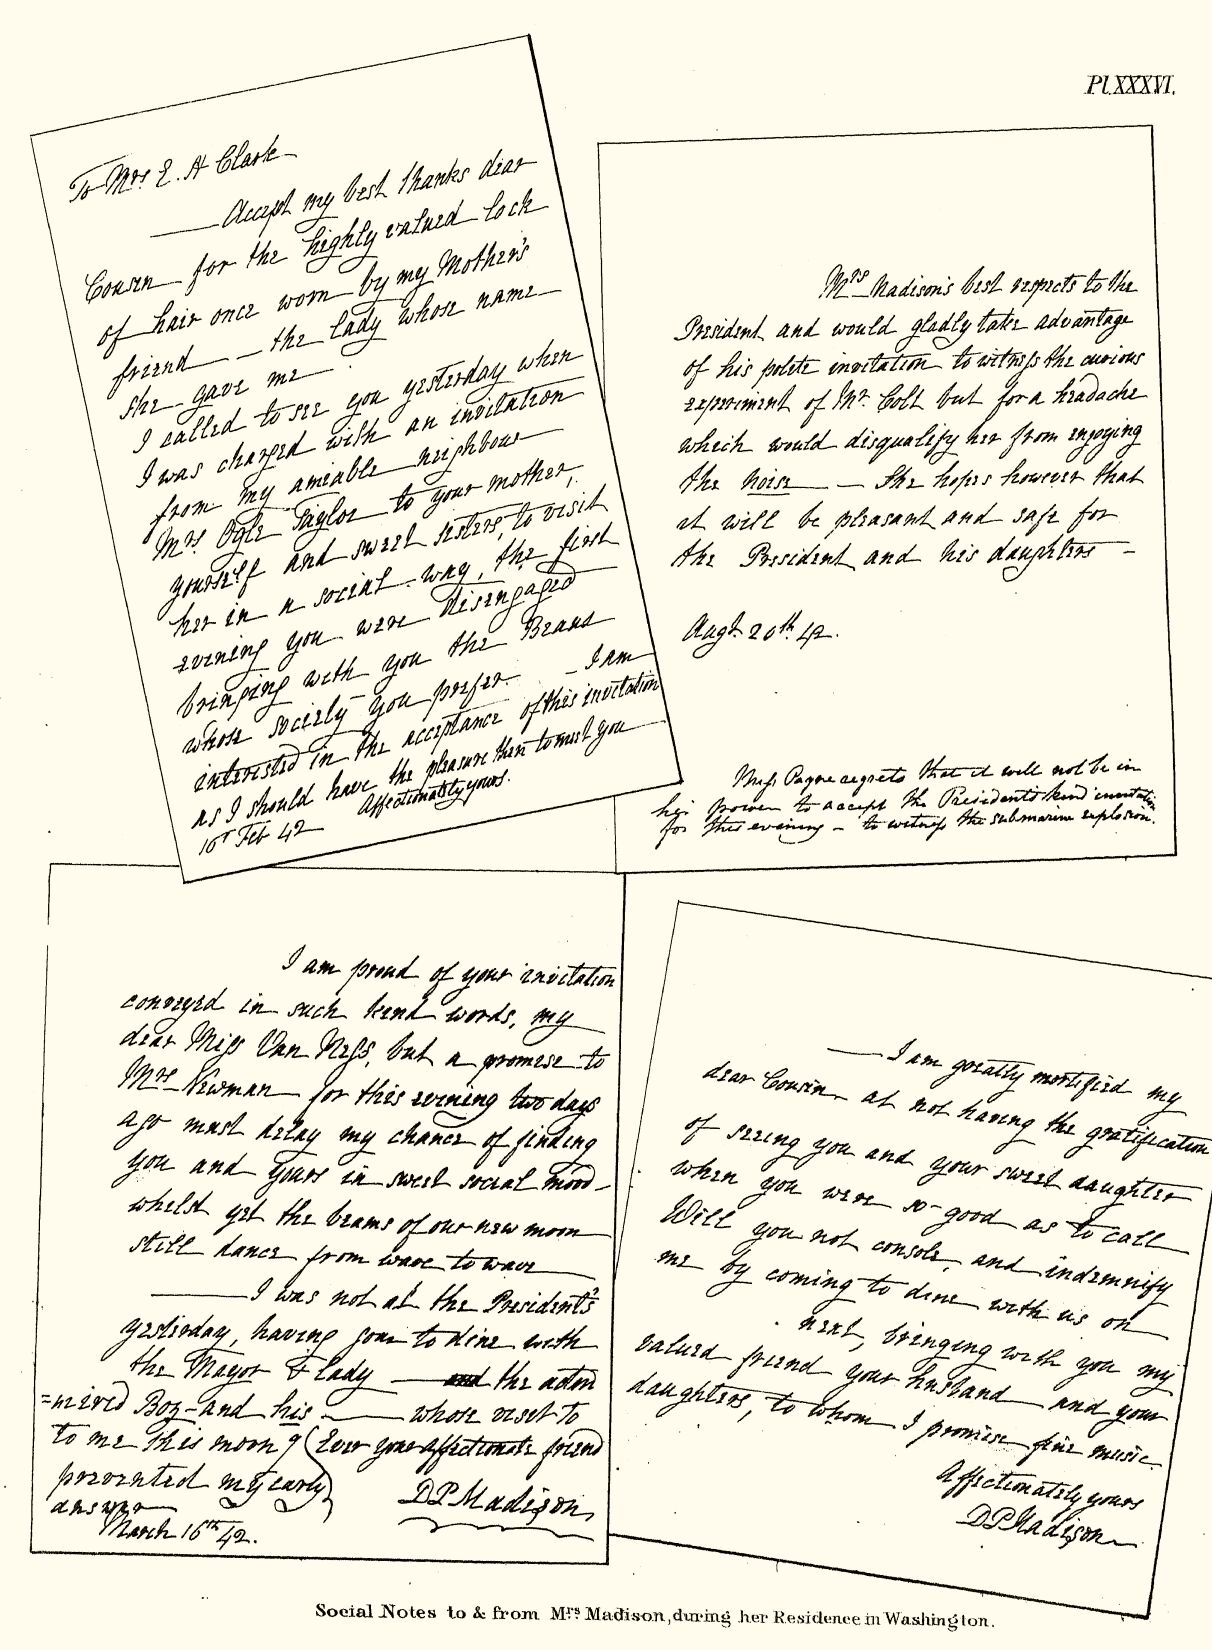 Pl.XXXVI.
To Mrs. E. A Clark
Accept my best thanks dear
Cousin for the highly valued lock
of hair once worn by my Mother's
friend — the lady whose name
she gave me
I called to see you yesterday when
I was charged with an invitation
from my amiable neighbour
Mrs Ogle Taylor to your mother,
yourself and sweet sisters, to visit
her in a social way, the first
evening you were disengaged
bringing with you the Beaus
whose society you prefer. — I am
interested in the acceptance of this invitation
as I should have the pleasure then to meet you
Affectionately yours.
16t Feb 42
Mrs Madison's best respects to the
President and would gladly take advantage
of his polite invitation to witness the curious
experiment of Mr. Colt but for a headache
which would disqualify her from enjoying
the noise — She hopes however that
it will be pleasant and safe for
the President and his daughters —
Augt. 20th 42.
Miss Payne regrets that it will not be in
her power to accept the Presidents kind invitation
for this evening — to witness the submarine explosion.
I am proud of your invitation
conveyed in such kind words, my
dear Miss Van Ness, but a promise to
Mrs Newman for this evening two days
ago must delay my chance of finding
you and yours in sweet social mood—
whilst yet the beams of our new moon
still dance from wave to wave
I was not at the President's
yesterday, having gone to dine with
the Mayor & lady — and the admi
=nired Boz—and his — whose visit to
to me this morng
prevented my early
answer
Ever your affectionate friend
DPMadison
March 16th 42.
I am greatly mortified my
dear Cousin at not having the gratification
of seeing you and your sweet daughter
when you were so good as to call
Will you not console, and indemnify
me by coming to dine with us on
next, bringing with you my
valued friend your husband and your
daughters, to whom I promise fine music.
Affectionately yours
DPMadison
Social Notes to & from Mrs Madison, during her Residence in Washington.